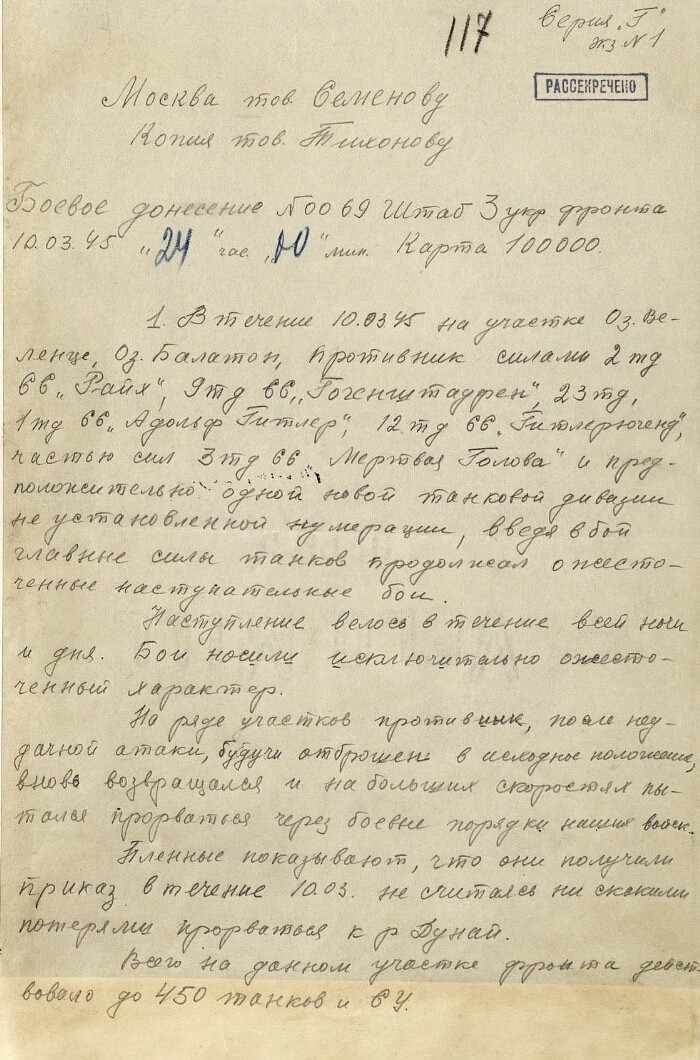 117
Серия "Г"
экз N 1
РАССЕКРЕЧЕНО
Москва тов. Семенову
Копия тов. Тихонову
Боевое донесение N0069 Штаб 3 укр фронта
10.03.45 "24" час. "00" мин. Карта 100000.
1. В течение 10.03.45 на участке Оз. Ве-
ленце, Оз. Балатон, противник силами 2 тд
СС "Райх", 9тд СС "Гогенштауфен", 23 тд,
1 тд СС "Адольф Гитлер", 12 тд СС "Гитлерюгенд",
частью сил 3 тд СС "Мертвая Голова" и пред-
положительно одной новой танковой дивизии
не установленной нумерации, введя в бой
главные силы танков продолжал ожесто-
ченные наступательные бои.
Наступление велось в течение всей ночи
и дня. Бои носили исключительно ожесто-
ченный характер.
На ряде участков противник, после неу-
дачной атаки, будучи отброшен в исходное положение,
вновь возвращался и на больших скоростях пы-
тался прорваться через боевые порядки наших войск.
Пленные показывают, что они получили
приказ в течение 10.03. не считаясь ни с какими
потерями прорваться к р Дунай.
Всего на данном участке фронта дейст-
вовало до 450 танков и СУ.